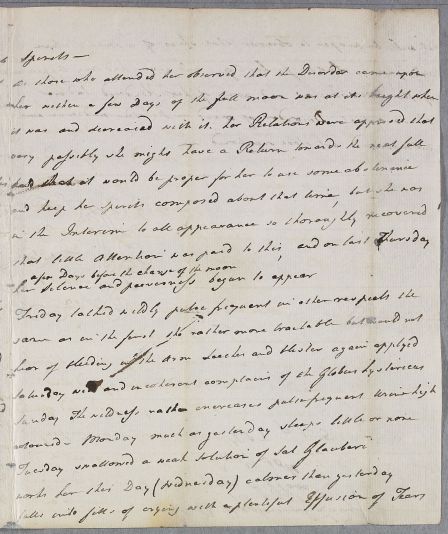 Spirits —
as those who attended her observed that the Disorder came upon
her within a few Days of the full moon was at its height when
it was and decreased with it. her Relations were apprised that
very possibly she might have a Return towards the next full
and that it would be proper for her to use some abstinence
and keep her spirits composed about that time, but she was
in the Interim to all appearance so thoroughly recovered
that little Attention was paid to this, and on last Thursday
a few Days before the change of the moon
her Silence and perverseness began to appear
Friday talked wildly pulse frequent in other respects the
same as in the first she rather more tractable but would not
hear of bleeding the Arm Leeches and blister again applyed
Saturday and incoherent complains of the Globus hystericus
Sunday The wildness rather increases pulse frequent Urine high
coloured Monday much as yesterday sleeps little or none
Tuesday swallowed a weak solution of Sal Glauberi
works her this Day (Wednesday) calmer than yesterday
falls into fits of crying with a plentiful Effusion of Tears